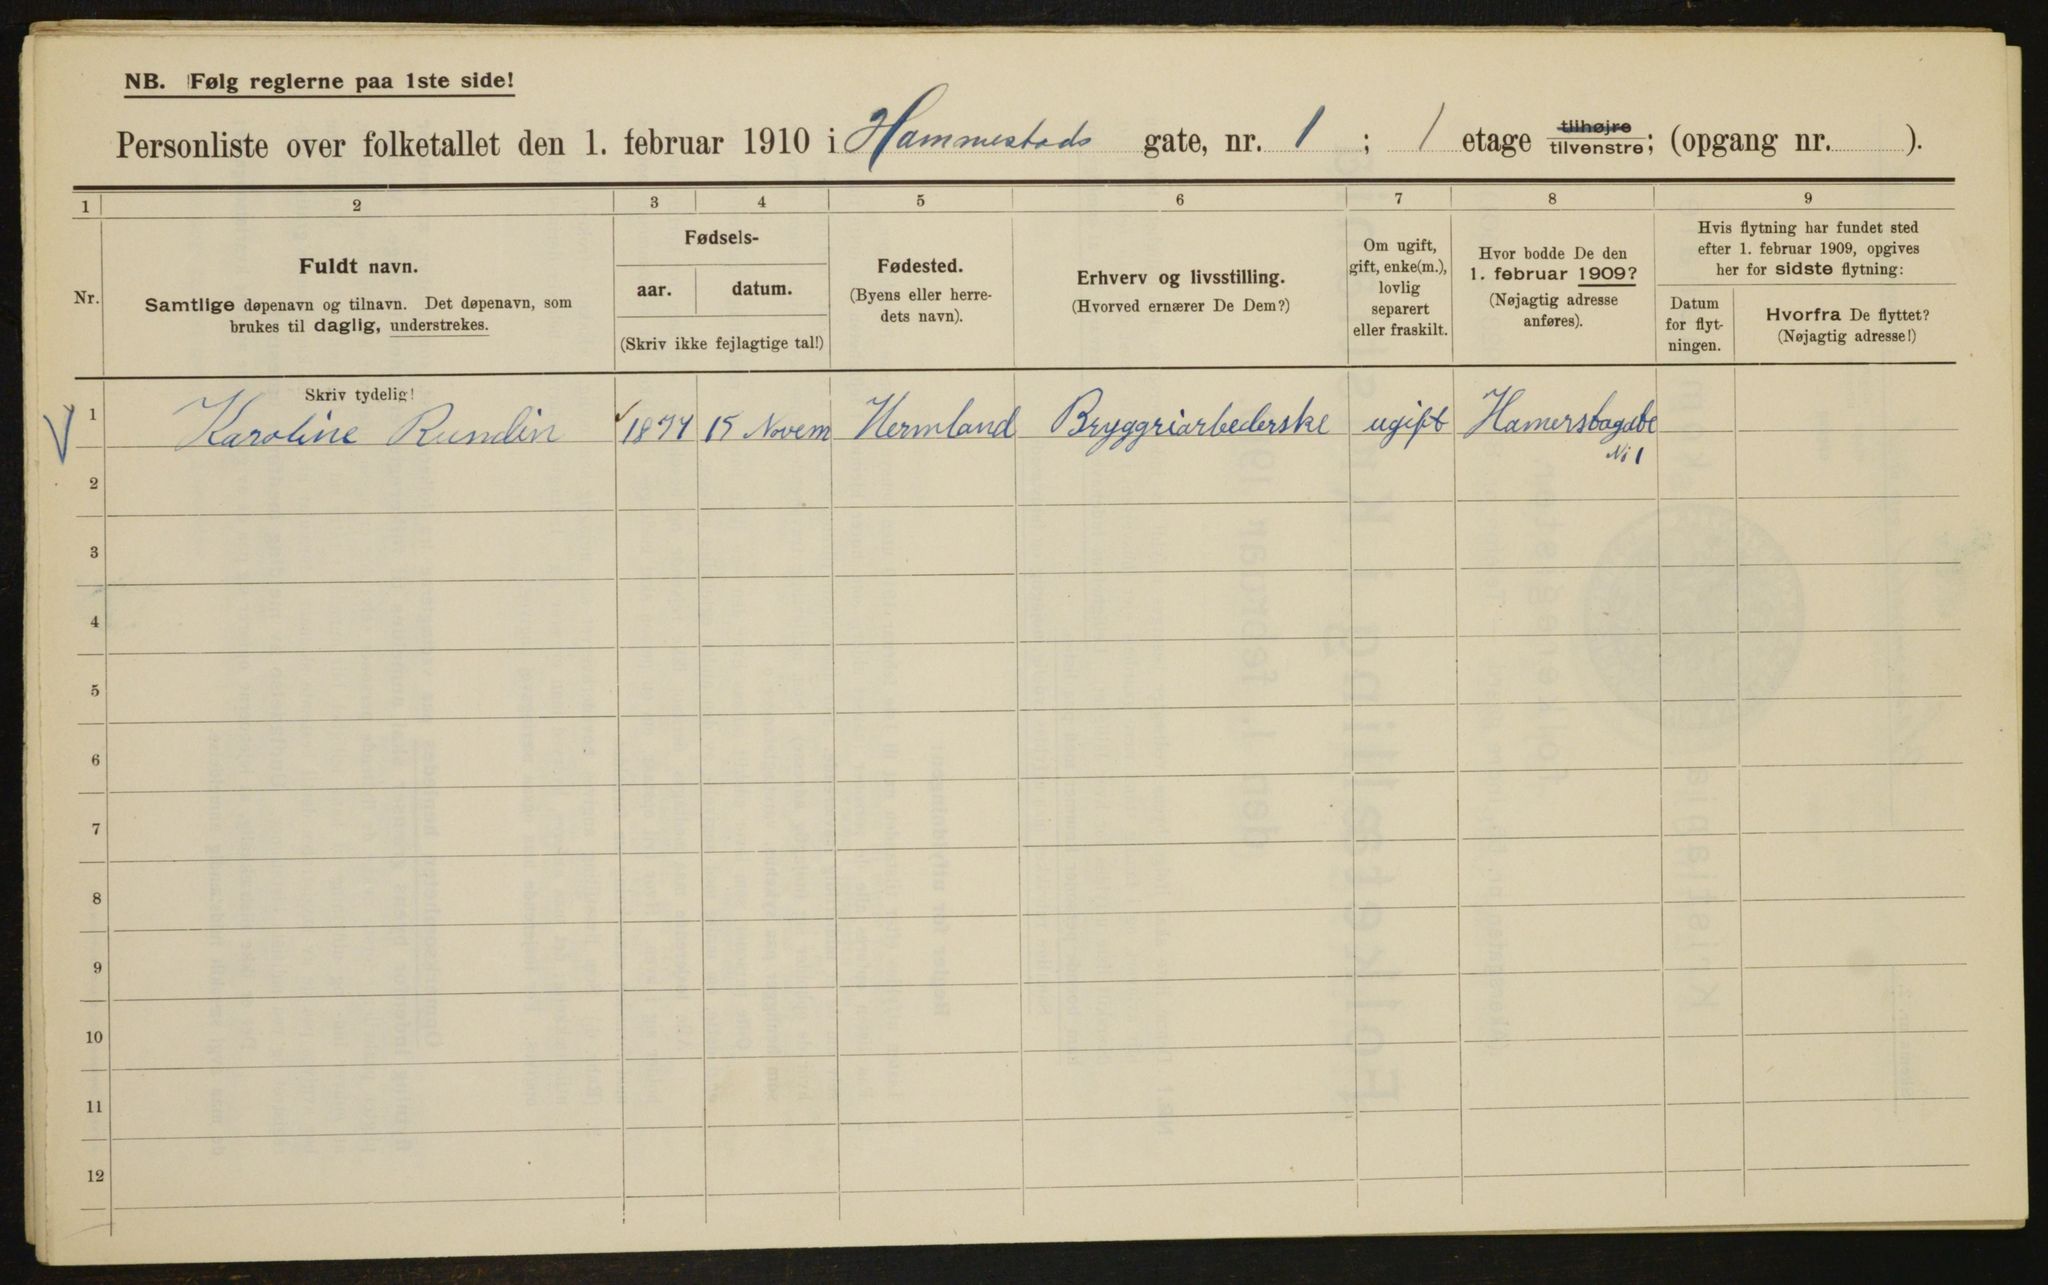 NB. Følg reglerne paa 1ste side!
Personliste over folketallet den 1. februar 1910 i Hammestads gate, nr. 1 ; 1 etage tilhøjre tilvenstre; (opgang nr. ).
1 2 3 4 5 6 7 8 9
Nr.
Fuldt navn.
Samtlige døpenavn og tilnavn. Det døpenavn, som
brukes til daglig, understrekes.
Fødsels-
aar. datum.
(Skriv ikke fejlagtige tal!)
Fødested.
(Byens eller herre-
dets navn).
Erhverv og livsstilling.
(Hvorved ernærer De Dem?)
Om ugift,
gift, enke(m.),
lovlig
separert
eller fraskilt.
Hvor bodde De den
1. februar 1909?
(Nøjagtig adresse
anføres).
Hvis flytning har fundet sted
efter 1. februar 1909, opgives
her for sidste flytning:
Datum
for flyt-
ningen.
Hvorfra De flyttet?
(Nøjagtig adresse!)
Skriv tydelig!
1 Karoline Rundin 1874 15 Novem Wermland Bryggriarbederske ugift Hamerstagate
No 1
2
3
4
5
6
7
8
9
10
11
12